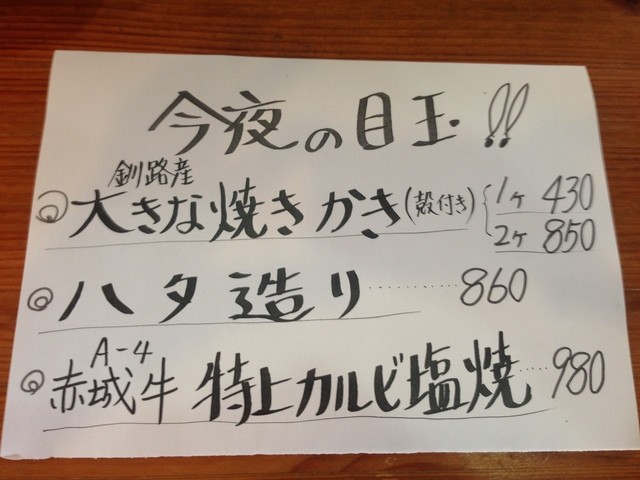 今夜の目玉!!
釧路産
◎大きな焼きかき(殻付き) 1ヶ 430
2ヶ 850
◎ハタ造り………… 860
A-4
◎赤城牛 特上カルビ塩焼…… 980